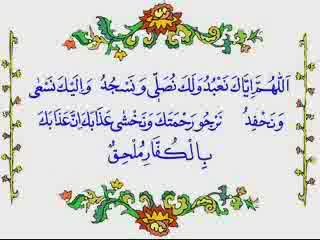 اَللّٰهُمَّ اِيَّاكَ نَعْبُدُ وَلَكَ نُصَلِّى وَنَسْجُدُ وَاِلَيْكَ نَسْعٰى
وَنَحْفِدُ نَرْجُو رَحْمَتَكَ وَنَخْشٰى عَذَابَكَ اِنَّ عَذَابَكَ
بِالْكُفَّارِ مُلْحِقٌ